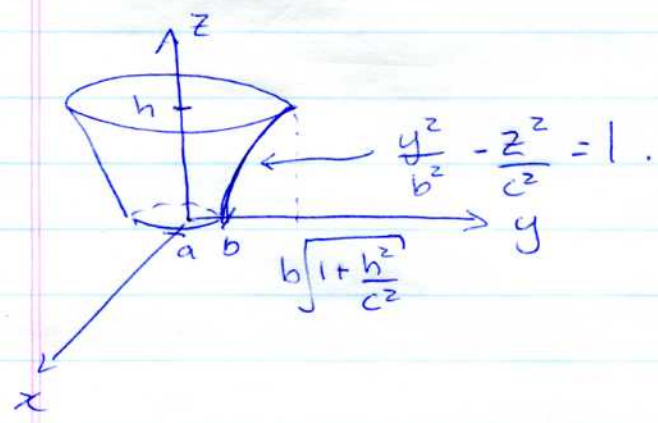 z
h
y²/b² - z²/c² = 1.
y
a b
b√(1 + h²/c²)
x